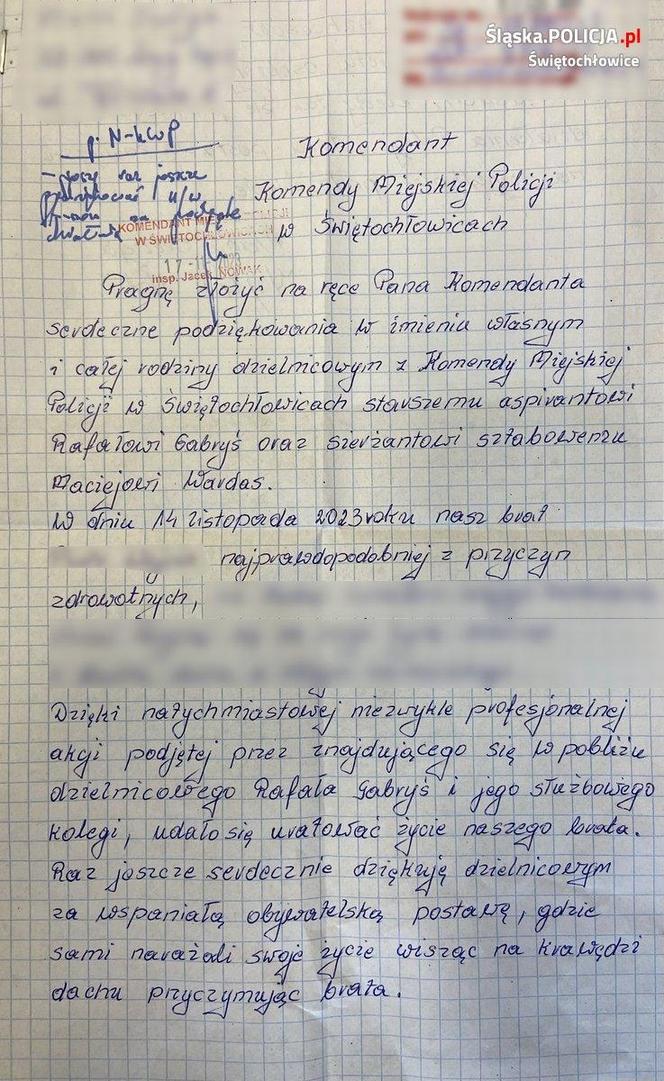 Śląska.POLICJA.pl
Świętochłowice
p. N-KWP
Komendant
Komendy Miejskiej Policji
w Świętochłowicach
KOMENDANT MIEJSKI POLICJI
W ŚWIĘTOCHŁOWICACH
insp. Jacek NOWAK
Pragnę złożyć na ręce Pana Komendanta
serdeczne podziękowania w imieniu własnym
i całej rodziny dzielnicowym z Komendy Miejskiej
Policji w Świętochłowicach starszemu aspirantowi
Rafałowi Gabryś oraz sierżantowi sztabowemu
Maciejowi Wardas.
W dniu 14 listopada 2023 roku nasz brat
najprawdopodobniej z przyczyn
zdrowotnych,
Dzięki natychmiastowej niezwykle profesjonalnej
akcji podjętej przez znajdującego się w pobliżu
dzielnicowego Rafała Gabryś i jego służbowego
kolegi, udało się uratować życie naszego brata.
Raz jeszcze serdecznie dziękuję dzielnicowym
za wspaniałą obywatelską postawę, gdzie
sami narażali swoje życie wisząc na krawędzi
dachu przyczymując brata.